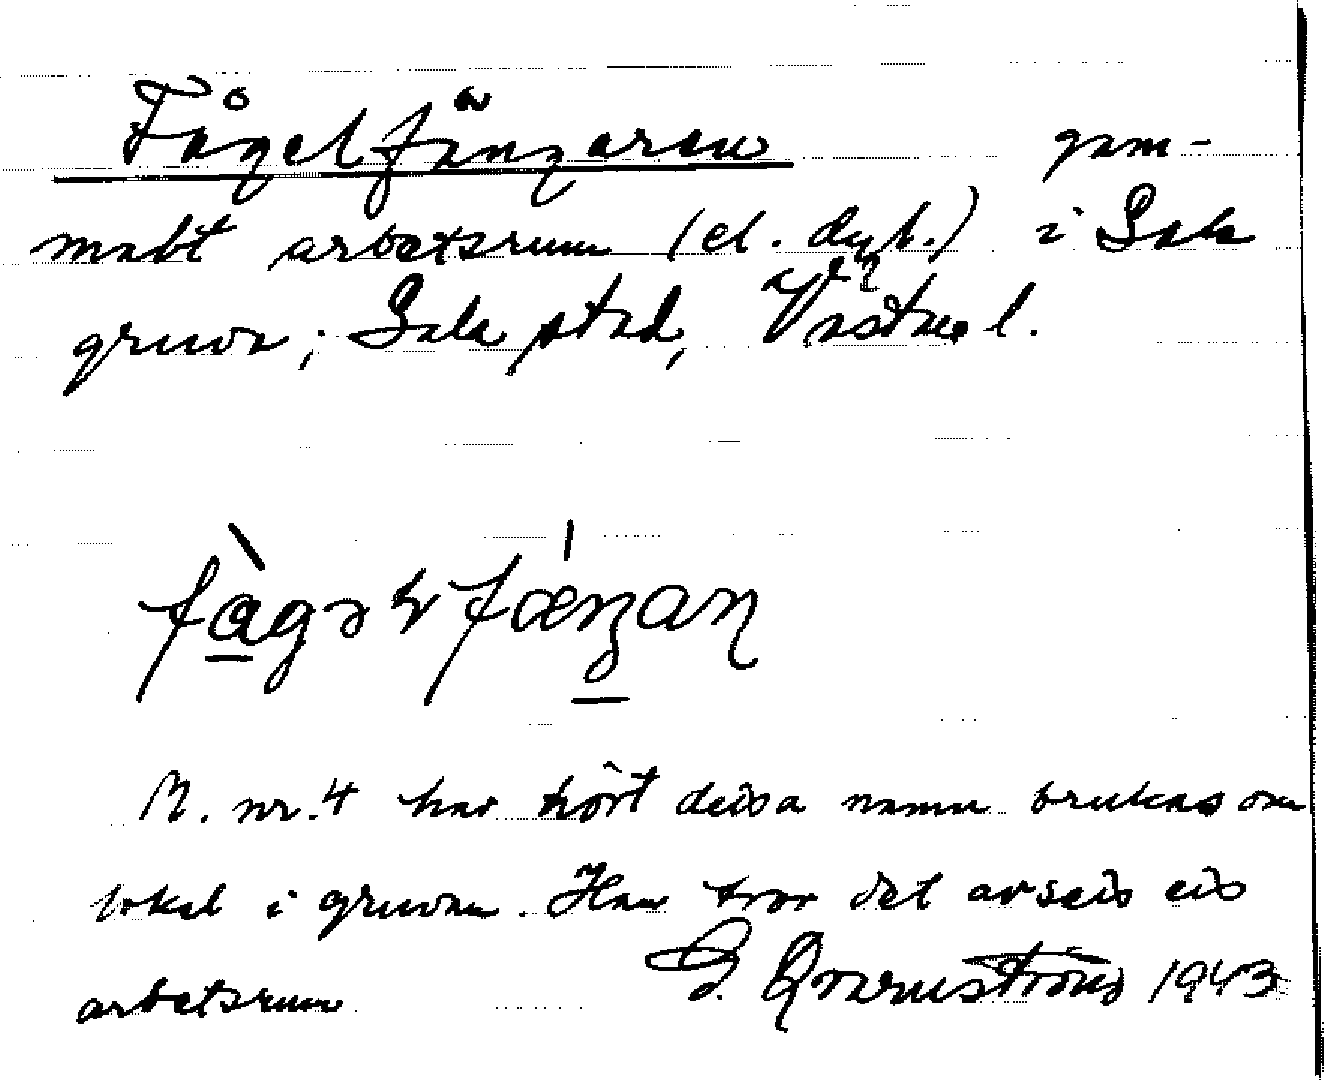 Fågelfängaren gam-
malt arbetsrum (el. dyl.) i Sala
gruva; Sala stad, Västml.
fågəlfæŋaɳ
M. nr. 4 har hört dessa namn brukas om
lokal i gruvan. Han tror det avseds ett
arbetsrum. G. Qvarnström 1943